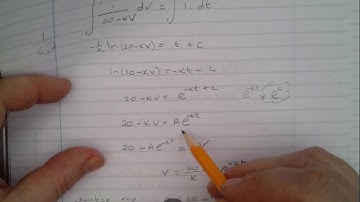 ∫ 1/(20-kV) dV = ∫ 1. dt
-1/k ln(20-kV) = t + c
ln(20-kV) = -kt + c
20-kV = e^(-kt + c) e^(-kt) e^c
20-kV = Ae^(-kt)
20 - Ae^(-kt) = V
V = 20/k e^(-kt)